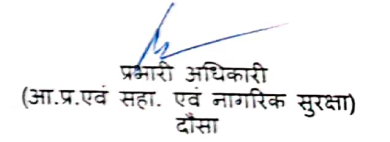 प्रभारी अधिकारी
(आ.प्र.एवं सहा. एवं नागरिक सुरक्षा)
दौसा